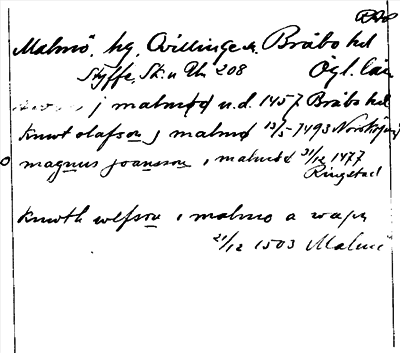 Malmö, hg, Kvillinge sn. Bråbo hd
Styffe, Sk. u Un. 208 Ögl. län
j malmöö u.d. 1457 Bråbo hd
Knwt olafson j malmö 13/5 1493
magnus joansson i malmöö 31/12 1477
Ringstad
Knwth wlfson i malmo a wapn
21/12 1503 Malmö